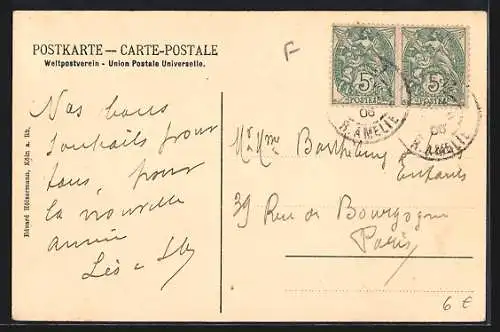 F
POSTKARTE — CARTE-POSTALE
Weltpostverein - Union Postale Universelle.
5c 5c
POSTES POSTES
06 06
R. AMELIE R. AMELIE
Nos bons
souhaits pour
tous, pour
la nouvelle
année
Léo
Mr & Mme Barthélemy
Enfants
39 Rue de Bourgogne
Paris
6 €
Eduard Hülsermann, Köln a. Rh.